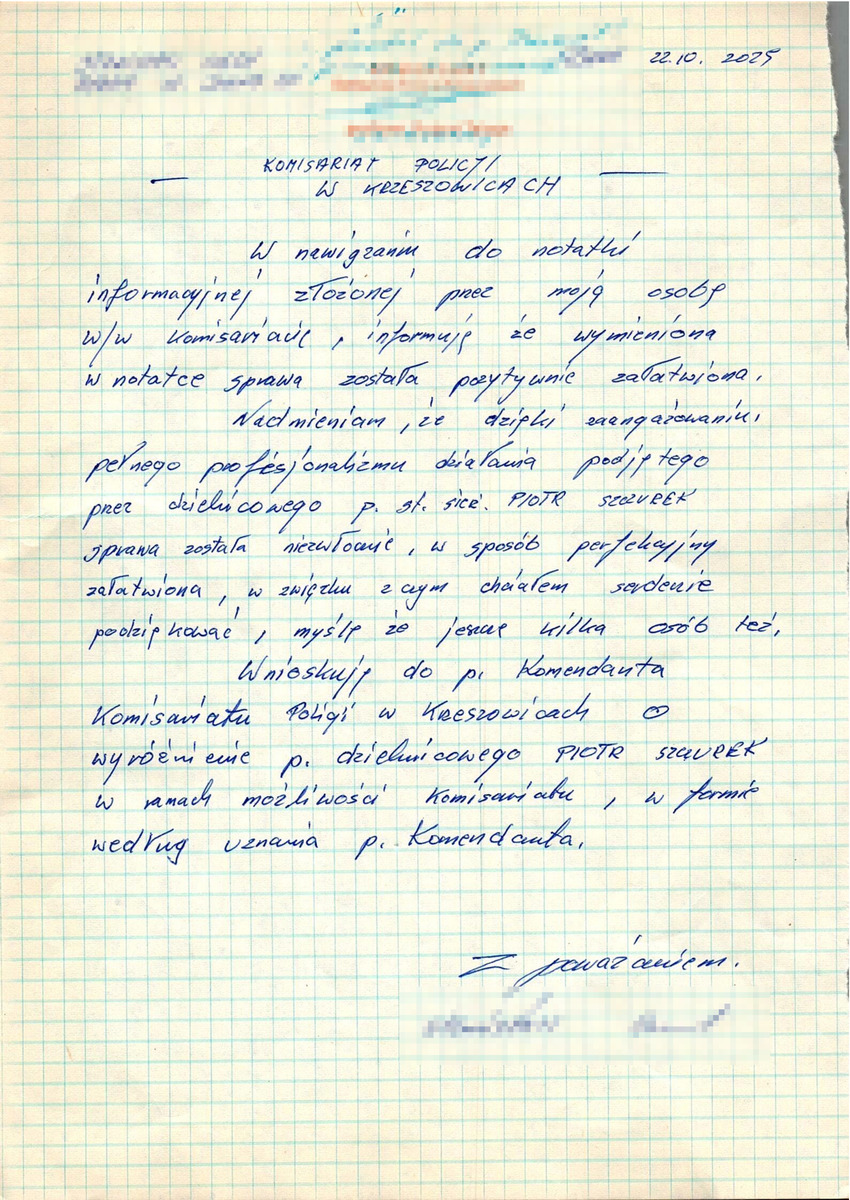 22.10. 2025
KOMISARIAT POLICJI
W KRZESZOWICACH
W nawiązaniu do notatki
informacyjnej złożonej przez moją osobę
w/w Komisariacie, informuję że wymieniona
w notatce sprawa została pozytywnie załatwiona.
Nadmieniam, że dzięki zaangażowaniu,
pełnego profesjonalizmu działania podjętego
przez dzielnicowego p. st. sierż. PIOTR SZCZUREK
sprawa została niezwłocznie, w sposób perfekcyjny
załatwiona, w związku z czym chciałem serdecznie
podziękować, myślę że jeszcze kilka osób też.
Wnioskuję do p. Komendanta
Komisariatu Policji w Krzeszowicach o
wyróżnienie p. dzielnicowego PIOTR SZCZUREK
w ramach możliwości Komisariatu, w formie
według uznania p. Komendanta.
Z poważaniem.